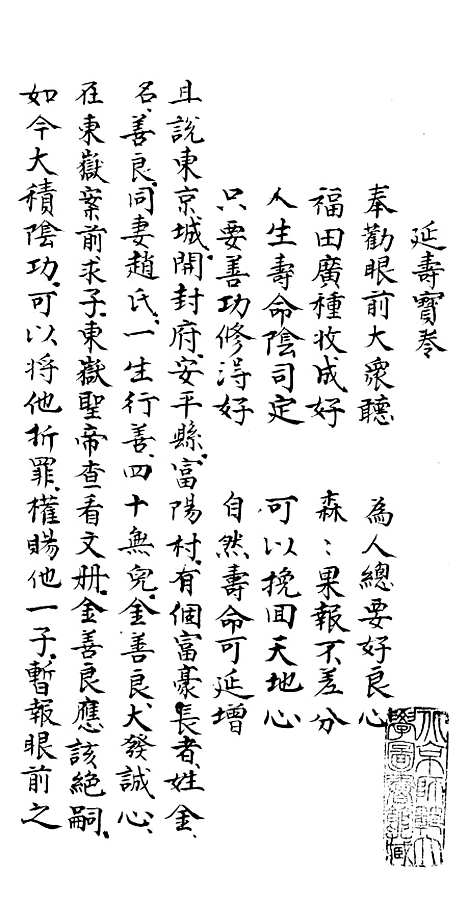 延壽寶卷
奉勸眼前大衆聽 為人總要好良心
福田廣種收成好 森〻果報不差分
人生壽命陰司定 可以挽回天地心
只要善功修淂好 自然壽命可延增
且說東京城、開封府、安平縣、富陽村、有個富豪長者、姓金、
名善良、同妻趙氏、一生行善、四十無兒、金善良大發誠心、
在東嶽案前求子、東嶽聖帝查看文册、金善良應該絕嗣、
如今大積陰功、可以將他折罪、權賜他一子、暫報眼前之
北京師範大
學圖書館藏